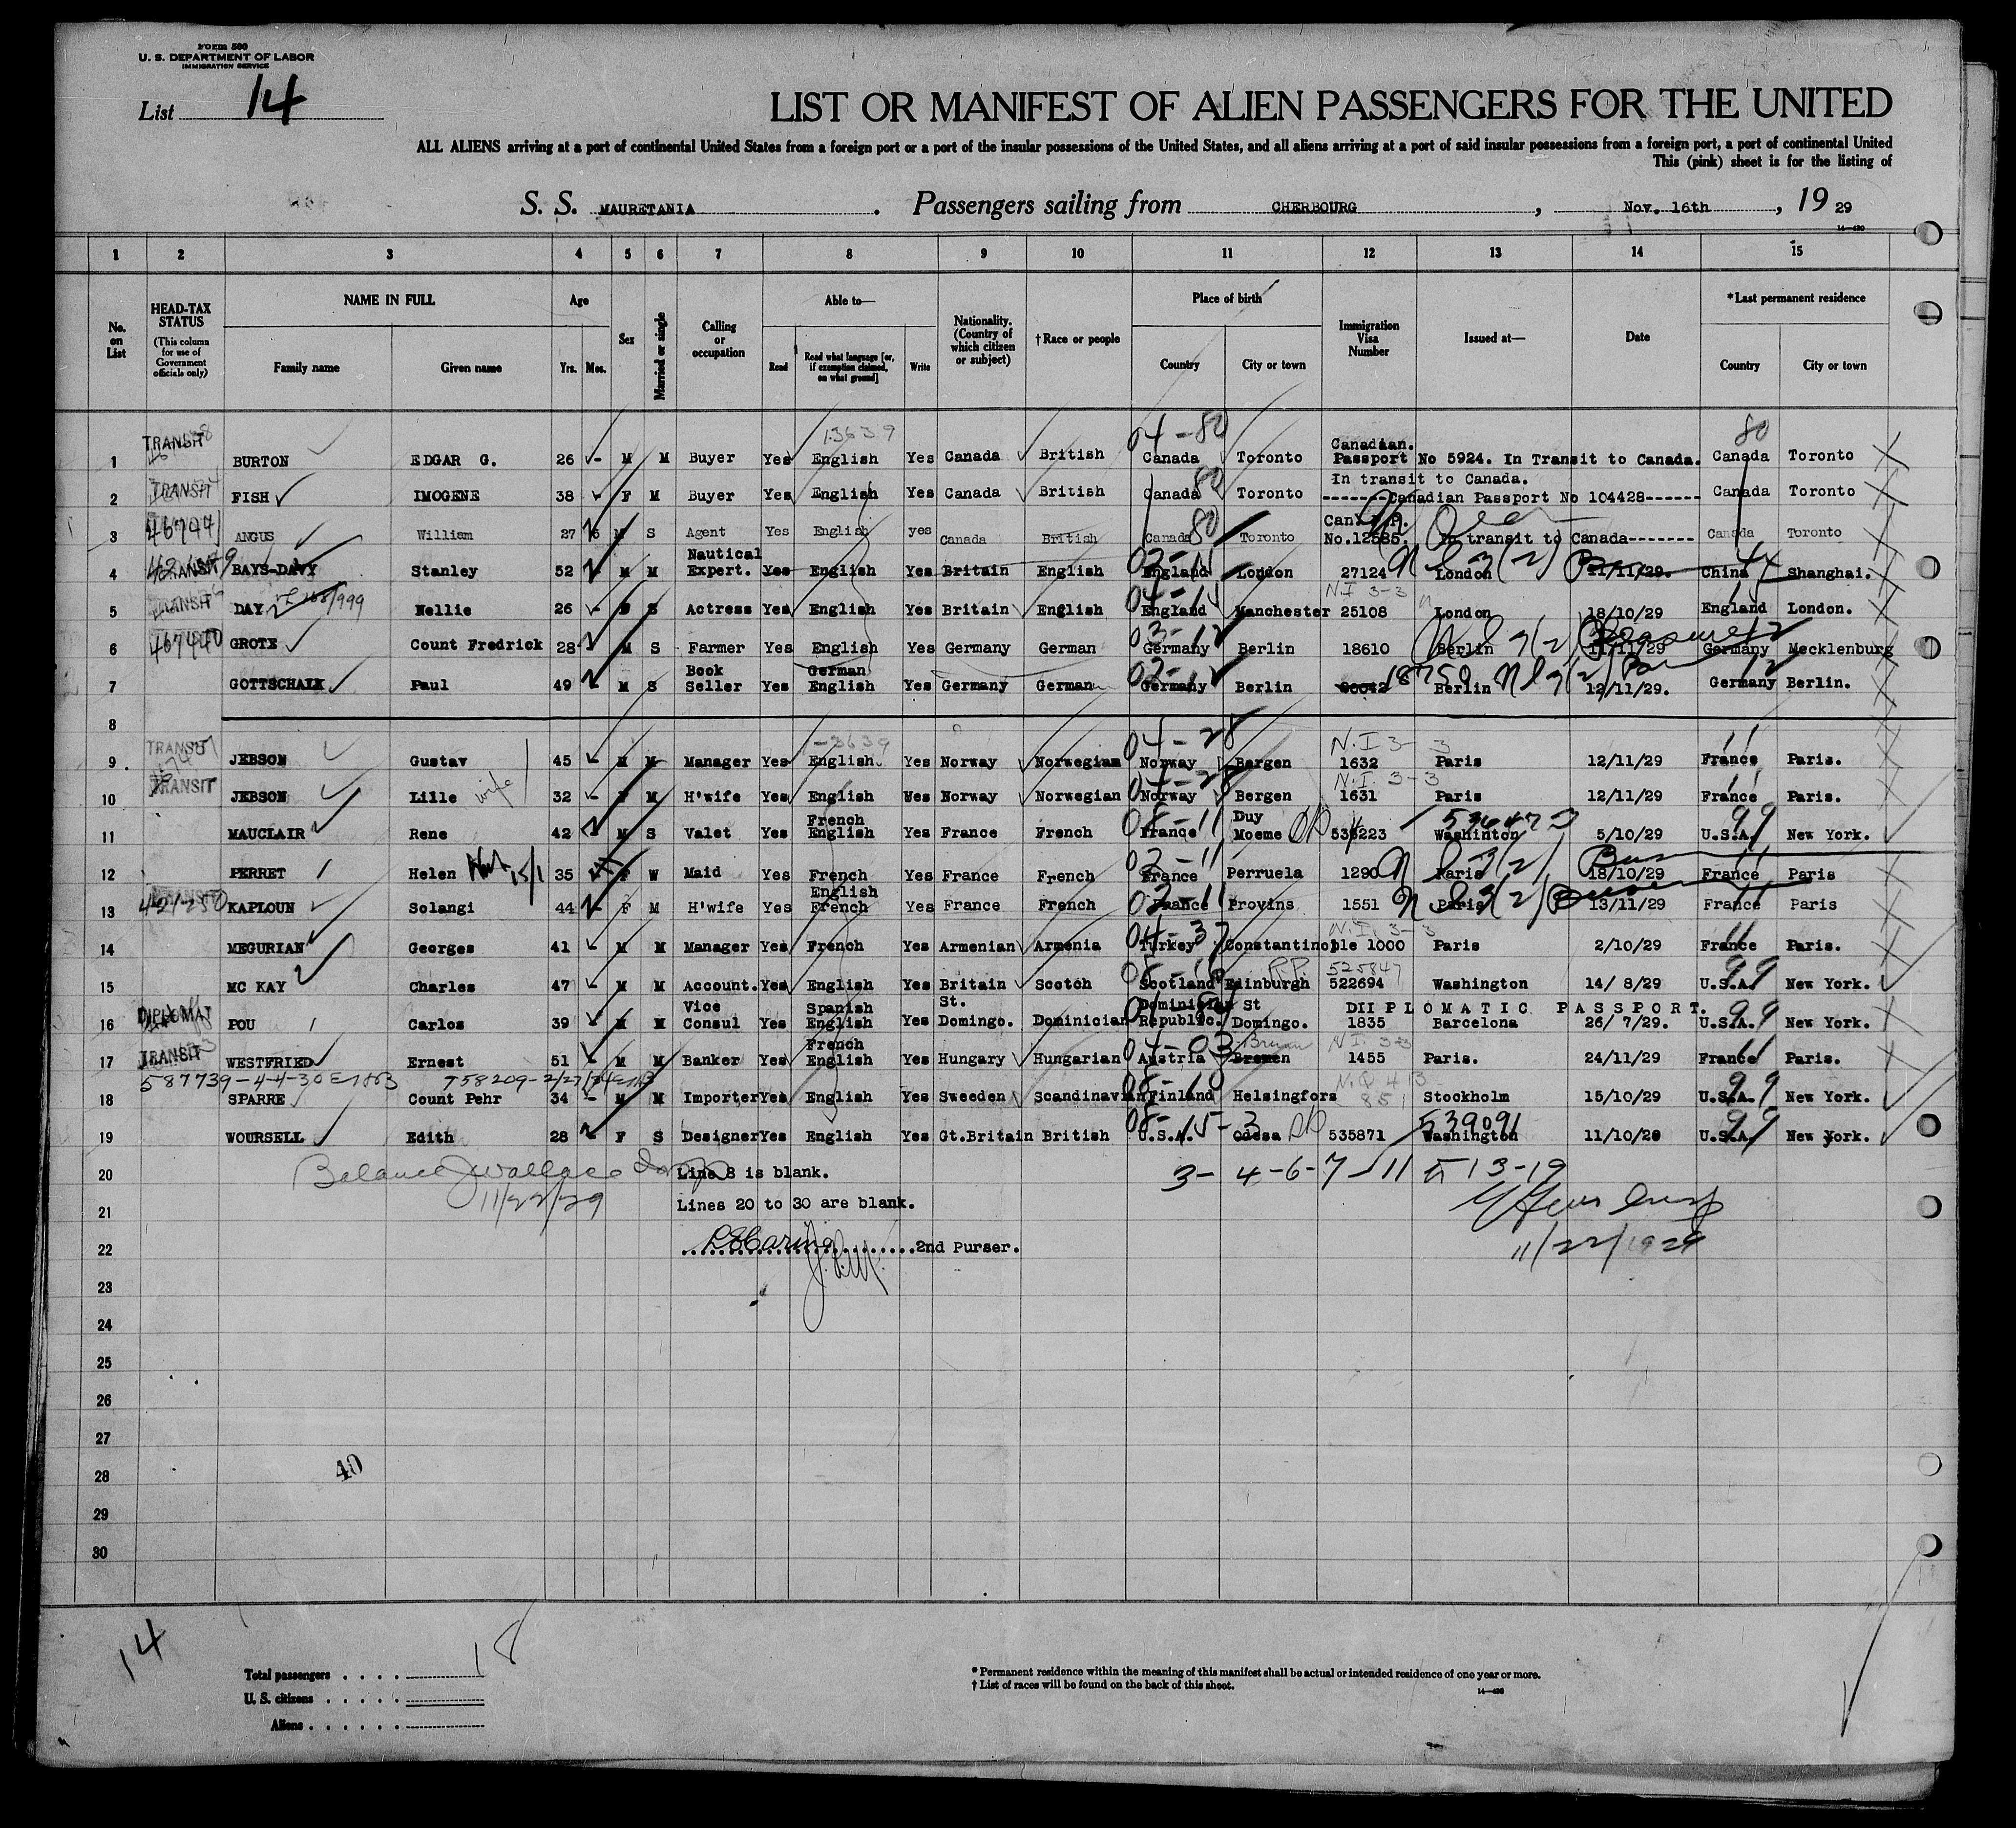 Form 500
U. S. DEPARTMENT OF LABOR
IMMIGRATION SERVICE
List 14
LIST OR MANIFEST OF ALIEN PASSENGERS FOR THE UNITED
ALL ALIENS arriving at a port of continental United States from a foreign port or a port of the insular possessions of the United States, and all aliens arriving at a port of said insular possessions from a foreign port, a port of continental United
This (pink) sheet is for the listing of
S. S. MAURETANIA. Passengers sailing from CHERBOURG, Nov. 16th, 19 29
1 2 3 4 5 6 7 8 9 10 11 12 13 14 15
No. on List
HEAD-TAX STATUS (This column for use of Government officials only)
NAME IN FULL
Family name Given name
Age
Yrs. Mos.
Sex
Married or single
Calling or occupation
Able to—
Read Read what language [or, if exemption claimed, on what ground] Write
Nationality. (Country of which citizen or subject)
†Race or people
Place of birth
Country City or town
Immigration Visa Number
Issued at—
Date
*Last permanent residence
Country City or town
1 TRANSIT BURTON EDGAR G. 26 - M M Buyer Yes English Yes Canada British 04-80 Canada Toronto Canadian. Passport No 5924. In Transit to Canada. 80 Canada Toronto
2 TRANSIT FISH IMOGENE 38 - F M Buyer Yes English Yes Canada British Canada 80 Toronto In transit to Canada. -------Canadian Passport No 104428------ Canada Toronto
3 ANGUS William 27 6 M S Agent Yes English yes Canada British Canada 80 Toronto No.12585. In transit to Canada------- Canada Toronto
4 TRANSIT BAYS-DAVY Stanley 52 M M Nautical Expert. Yes English Yes Britain English England London 27124 London 11/11/29. China Shanghai.
5 TRANSIT DAY Nellie 26 - F S Actress Yes English Yes Britain English England Manchester 25108 N.I 3-3 London 18/10/29 England London.
6 467440 GROTE Count Fredrick 28 M S Farmer Yes English Yes Germany German 03-12 Germany Berlin 18610 Berlin 11/11/29 Germany Mecklenburg
7 GOTTSCHALK Paul 49 - M S Book Seller Yes German English Yes Germany German 02-12 Germany Berlin 18750 Berlin 12/11/29. 12 Germany Berlin.
8
9 TRANSIT JEBSON Gustav 45 M M Manager Yes English Yes Norway Norwegian 04-28 Norway Bergen N.I 3-3 1632 Paris 12/11/29 11 France Paris.
10 TRANSIT JEBSON Lille wife 32 - F M H'wife Yes English Wes Norway Norwegian 04-28 Norway Bergen N.I. 3-3 1631 Paris 12/11/29 11 France Paris.
11 MAUCLAIR Rene 42 M S Valet Yes French English Yes France French 08-11 France Duy Moeme 536223 Washinton 5/10/29 99 U.S.A. New York.
12 PERRET Helen 35 F W Maid Yes French Yes France French 02-11 France Perruela 1290 Paris 18/10/29 11 France Paris
13 KAPLOUN Solangi 44 - F M H'wife Yes English French Yes France French 02-11 France Provins 1551 Paris 13/11/29 11 France Paris
14 MEGURIAN Georges 41 - M M Manager Yes French Yes Armenian Armenia 04-37 Turkey Constantinople 1000 N.I. 3-3 Paris 2/10/29 11 France Paris.
15 MC KAY Charles 47 - M M Account. Yes English Yes Britain Scotch Scotland Edinburgh 525847 522694 Washington 14/ 8/29 99 U.S.A. New York.
16 DIPLOMAT POU Carlos 39 M M Vice Consul Yes Spanish English Yes St. Domingo. Dominician Dominician Republic. St Domingo. DII P L O M A T I C P A S S P O R T. 1835 Barcelona 26/ 7/29. 99 U.S.A. New York.
17 TRANSIT WESTFRIED Ernest 51 M M Banker Yes French English Yes Hungary Hungarian 04-03 Austria Bremen N.I. 3-3 1455 Paris. 24/11/29 11 France Paris.
587739-4-4-30
18 SPARRE Count Pehr 34 - M M Importer Yes English Yes Sweeden Scandinavian Finland Helsingfors 851 Stockholm 15/10/29 99 U.S.A. New York.
19 WOURSELL Edith 28 F S Designer Yes English Yes Gt.Britain British 08-15-3 U.S.A. Odesa 535871 539091 Washington 11/10/29 99 U.S.A. New york.
20 Line 8 is blank. 3- 4-6-7-11 13-19
11/22/29
21 Lines 20 to 30 are blank.
22 2nd Purser. 11/22/1929
23
24
25
26
27
28 40
29
30
14
Total passengers . . . . 18
U. S. citizens . . . . .
Aliens . . . . . .
* Permanent residence within the meaning of this manifest shall be actual or intended residence of one year or more.
† List of races will be found on the back of this sheet.